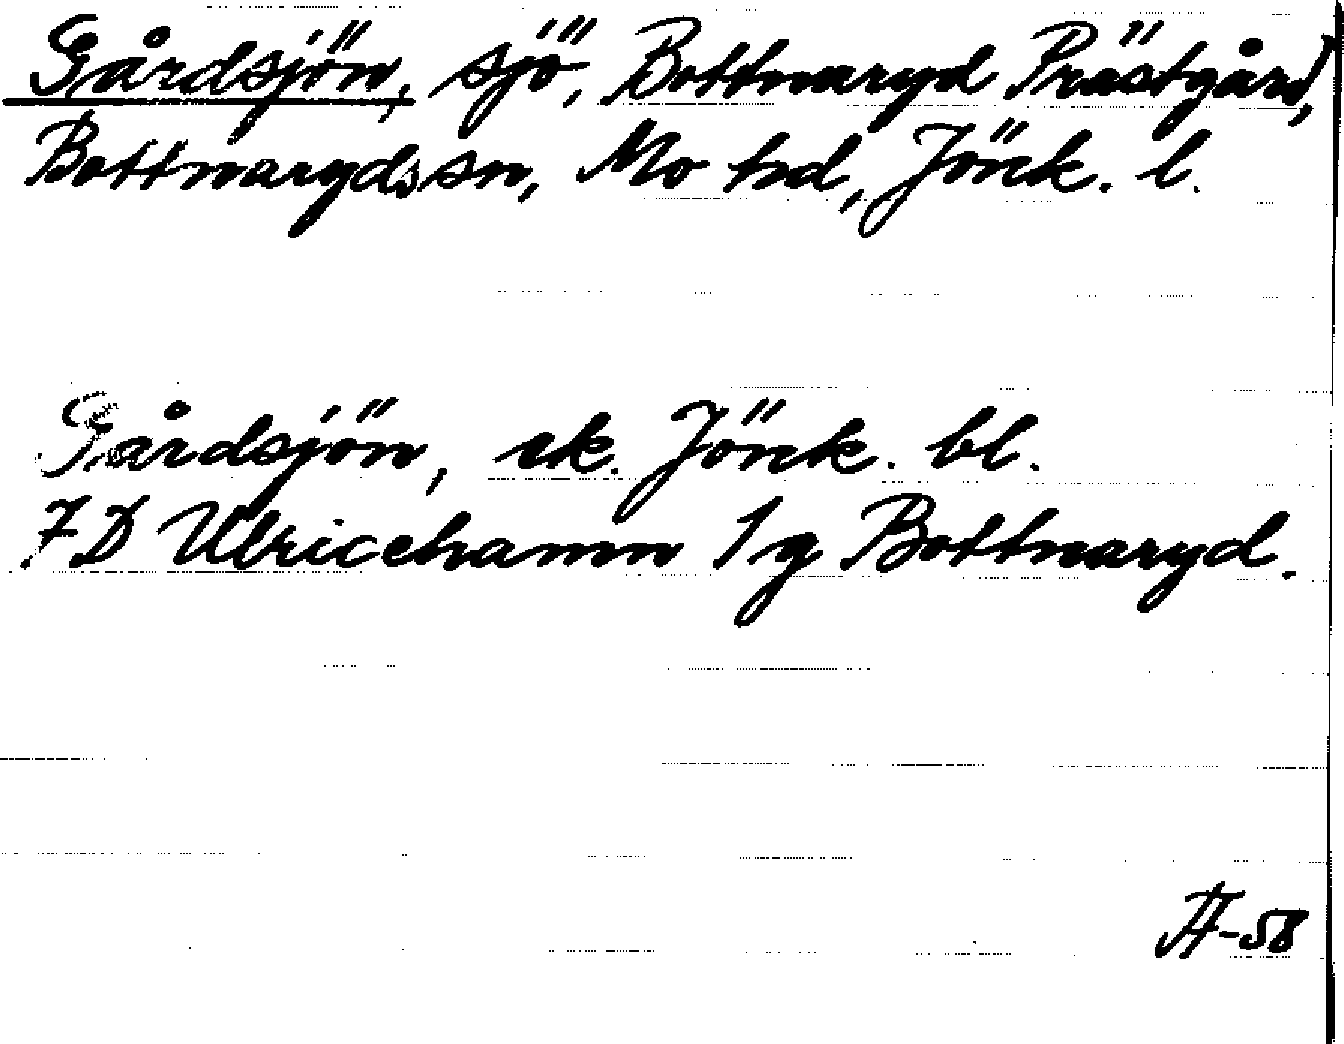 Gårdsjön, sjö, Bottnaryd Prästgård,
Bottnaryds sn, Mo hd, Jönk. l.
Gårdsjön, ek. Jönk. bl.
7 D Ulricehamn 1 g Bottnaryd.
-58